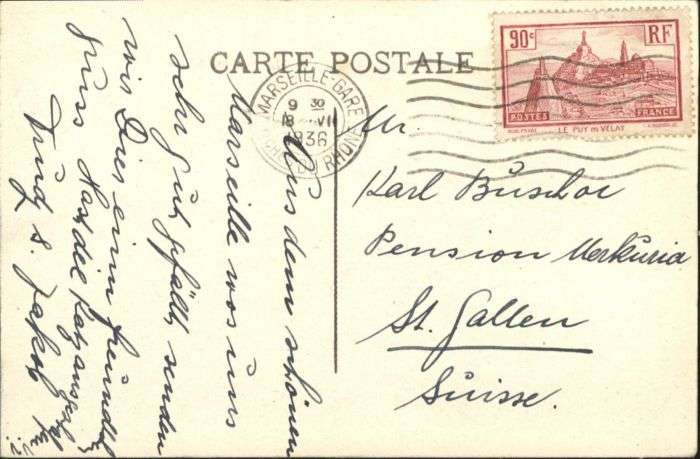 CARTE POSTALE
90c RF
POSTES FRANCE
LE PUY EN VELAY
MARSEILLE-GARE
9 30
18 VII
1936
BCHES DU RHONE
Mr.
Karl Büscher
Pension Merkuria
St. Gallen
Suisse.
Aus dem schönen
Marseille wo es uns
sehr gut gefällt, senden
wir Dir einen freundl.
Gruss
Trudy & Jakob